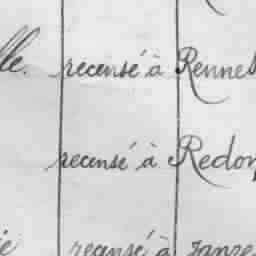 lle. recensé à Rennes
recensé à Redon
ie recensé à Janzé